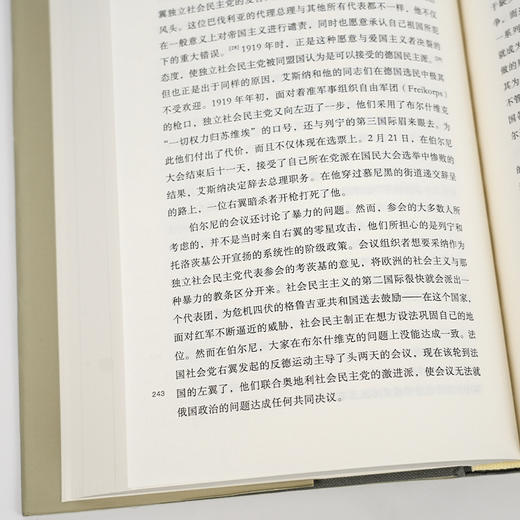 翼独立社会民主党的发言
风头。这位巴伐利亚的代理总理与其他所有代表都不一样，他不仅
在一般意义上对帝国主义进行谴责，同时也愿意承认自己祖国所犯
下的重大错误。[28] 1919 年时，正是这种愿意与爱国主义者决裂的
态度，使独立社会民主党被同盟国认为是可以接受的德国民主派。
但也正是出于同样的原因，艾斯纳和他的同志们在德国选民中极其
不受欢迎。1919 年年初，面对着准军事组织自由军团（Freikorps）
的枪口，独立社会民主党又向左迈了一步，他们采用了布尔什维克
“一切权力归苏维埃”的口号，还与列宁的第三国际眉来眼去。为
此他们付出了代价，而且不仅体现在选票上。2 月 21 日，在伯尔尼
大会结束后十一天，接受了自己所在党派在国民大会选举中惨败的
结果，艾斯纳决定辞去总理职务。在他穿过慕尼黑的街道递交辞呈
的路上，一位右翼暗杀者开枪打死了他。
伯尔尼的会议还讨论了暴力的问题。然而，参会的大多数人所
考虑的，并不是当时来自右翼的零星攻击，他们所担心的是列宁和
托洛茨基公开宣扬的系统性的阶级政策。会议组织者想要采纳作为
独立社会民主党代表参会的考茨基的意见，将欧洲的社会主义与那
种暴力的教条区分开来。社会民主主义的第二国际很快就会派出一
个代表团，为危机四伏的格鲁吉亚共和国送去鼓励——在这个国家，
面对红军不断逼近的威胁，社会民主制正在想方设法巩固自己的地
位。然而在伯尔尼，大家在布尔什维克的问题上没能达成一致。法
国社会党右翼发起的反德运动主导了头两天的会议，现在该轮到法
243 国的左翼了，他们联合奥地利社会民主党的激进派，使会议无法就
俄国政治的问题达成任何共同决议。